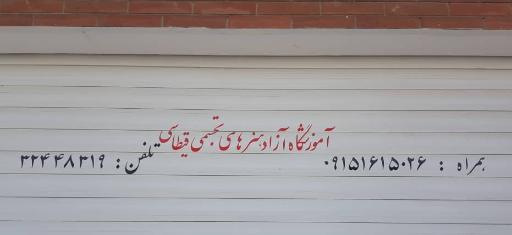 آموزشگاه آزاد هنرهای تجسمی قیطاسی
همراه : ۰۹۱۵۱۶۱۵۰۲۶ تلفن : ۳۲۴۴۸۳۱۹